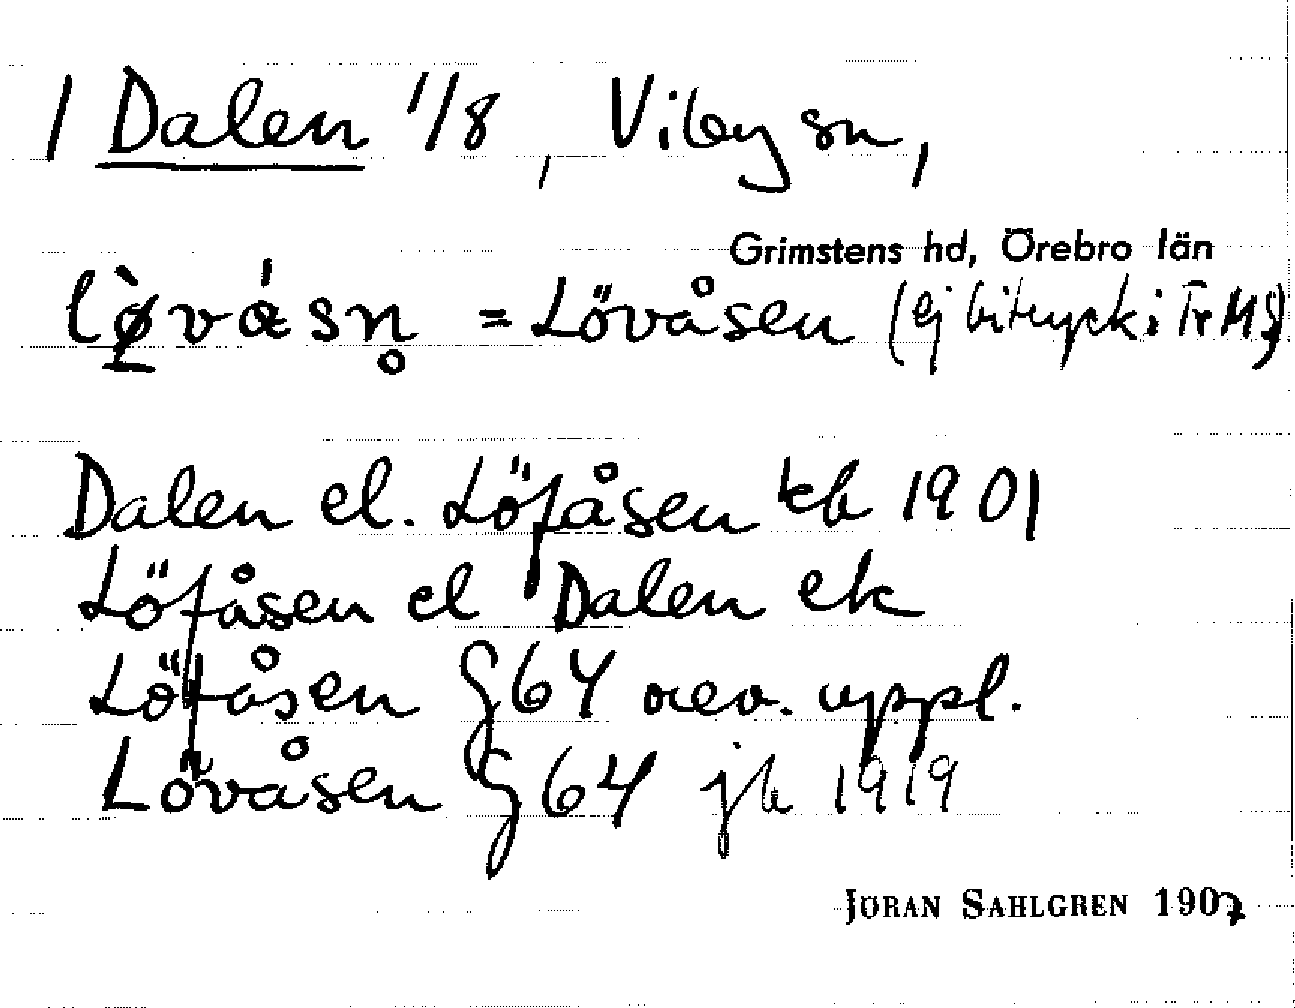 / Dalen 1/8, Viby sn,
Grimstens hd, Örebro län
lø̀vásn̥ = Lövåsen (ej bitryck i Tr MS)
Dalen el. Löfåsen kb 1901
Löfåsen el Dalen ek
Löfåsen G64 rev. uppl.
Lövåsen G64 jb 1919
JÖRAN SAHLGREN 1907